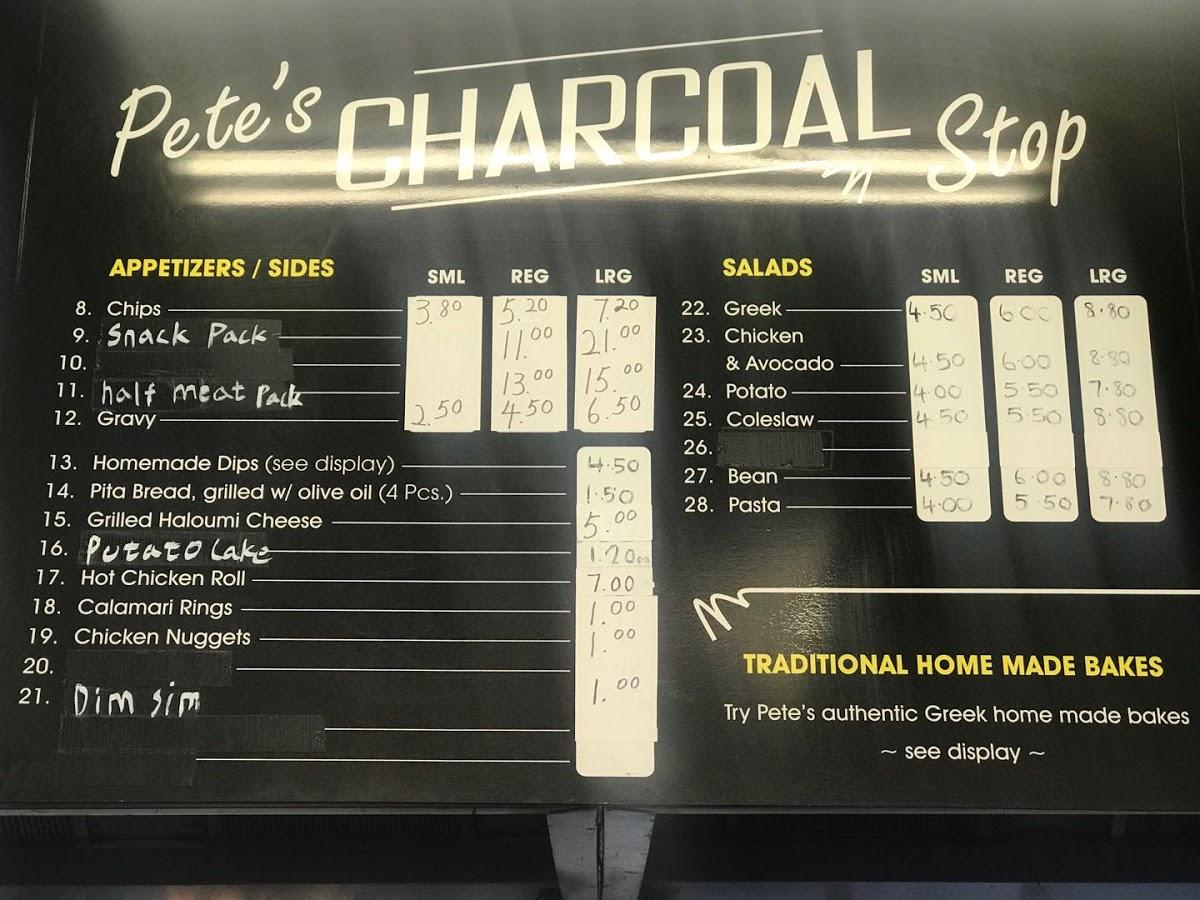 Pete's CHARCOAL n Stop
APPETIZERS / SIDES SML REG LRG
8. Chips 3.80 5.20 7.20
9. Snack Pack 11.00 21.00
10.
11. half meat Pack 13.00 15.00
12. Gravy 2.50 4.50 6.50
13. Homemade Dips (see display) 4.50
14. Pita Bread, grilled w/ olive oil (4 Pcs.) 1.50
15. Grilled Haloumi Cheese 5.00
16. Putato Cake 1.20ea
17. Hot Chicken Roll 7.00
18. Calamari Rings 1.00
19. Chicken Nuggets 1.00
20.
21. Dim Sim 1.00
SALADS SML REG LRG
22. Greek 4.50 6.00 8.80
23. Chicken
& Avocado 4.50 6.00 8.80
24. Potato 4.00 5.50 7.80
25. Coleslaw 4.50 5.50 8.80
26.
27. Bean 4.50 6.00 8.80
28. Pasta 4.00 5.50 7.80
TRADITIONAL HOME MADE BAKES
Try Pete's authentic Greek home made bakes
~ see display ~